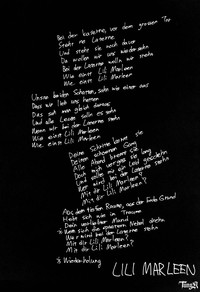 Bei der Kaserne, vor dem grossen Tor
Steht ne Laterne
Und steht sie noch davor
Da wollen wir uns wiedersehn
Bei der Laterne wolln wir stehn
Wie einst Lili Marleen
Wie einst Lili Marleen
Unsre beiden Schatten, sahn wie einer aus
Dass wir lieb uns hatten
Das sah man gleich daraus
Und alle Leute solln es sehn
Wenn wir bei der Laterne stehn
Wie einst Lili Marleen
Wie einst Lili Marleen
Deine Schritte kennt sie
Deinen schönen Gang
Alle Abend brennt sie
Mich vergass sie lang
Und sollte mir ein Leid geschehn
Wer wird bei der Laterne stehn
Mit dir Lili Marleen?
Mit dir Lili Marleen?
Aus dem tiefen Raume, aus der Erde Grund
Hebt sich wie im Traume
Dein verliebter Mund
* Wenn sich die späten Nebel drehn
Wer wird bei der Laterne stehn
Mit dir Lili Marleen?
Mit dir Lili Marleen?
* Wiederholung
LILI MARLEEN